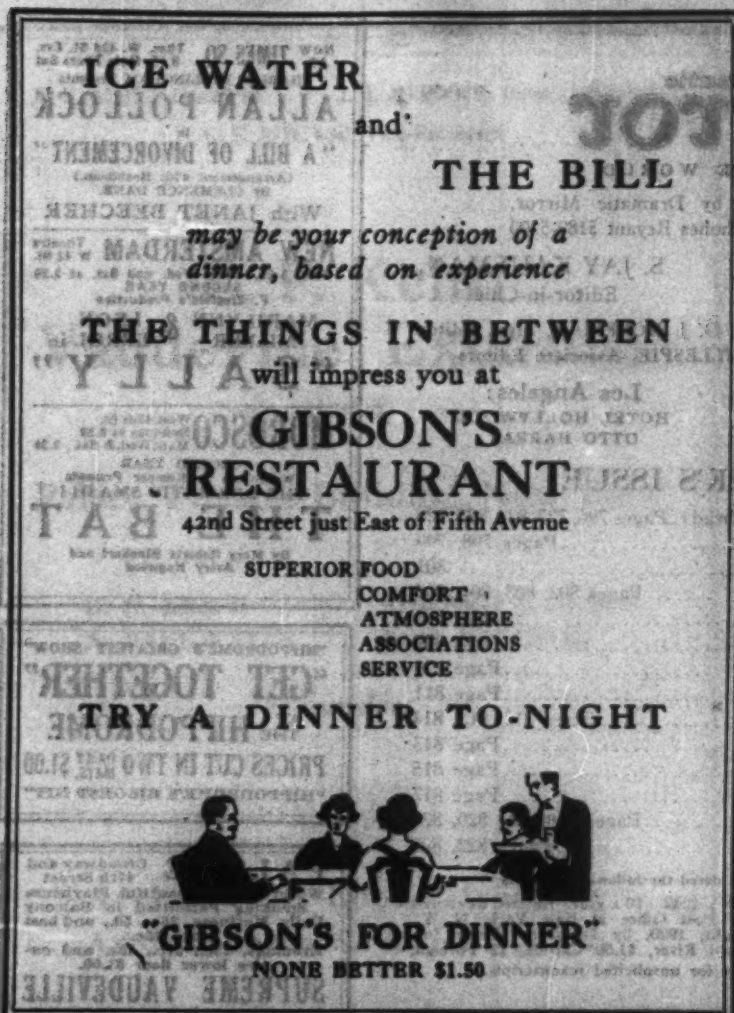 ICE WATER
and
THE BILL
may be your conception of a
dinner, based on experience
THE THINGS IN BETWEEN
will impress you at
GIBSON'S
RESTAURANT
42nd Street just East of Fifth Avenue
SUPERIOR FOOD
COMFORT
ATMOSPHERE
ASSOCIATIONS
SERVICE
TRY A DINNER TO-NIGHT
"GIBSON'S FOR DINNER"
NONE BETTER $1.50